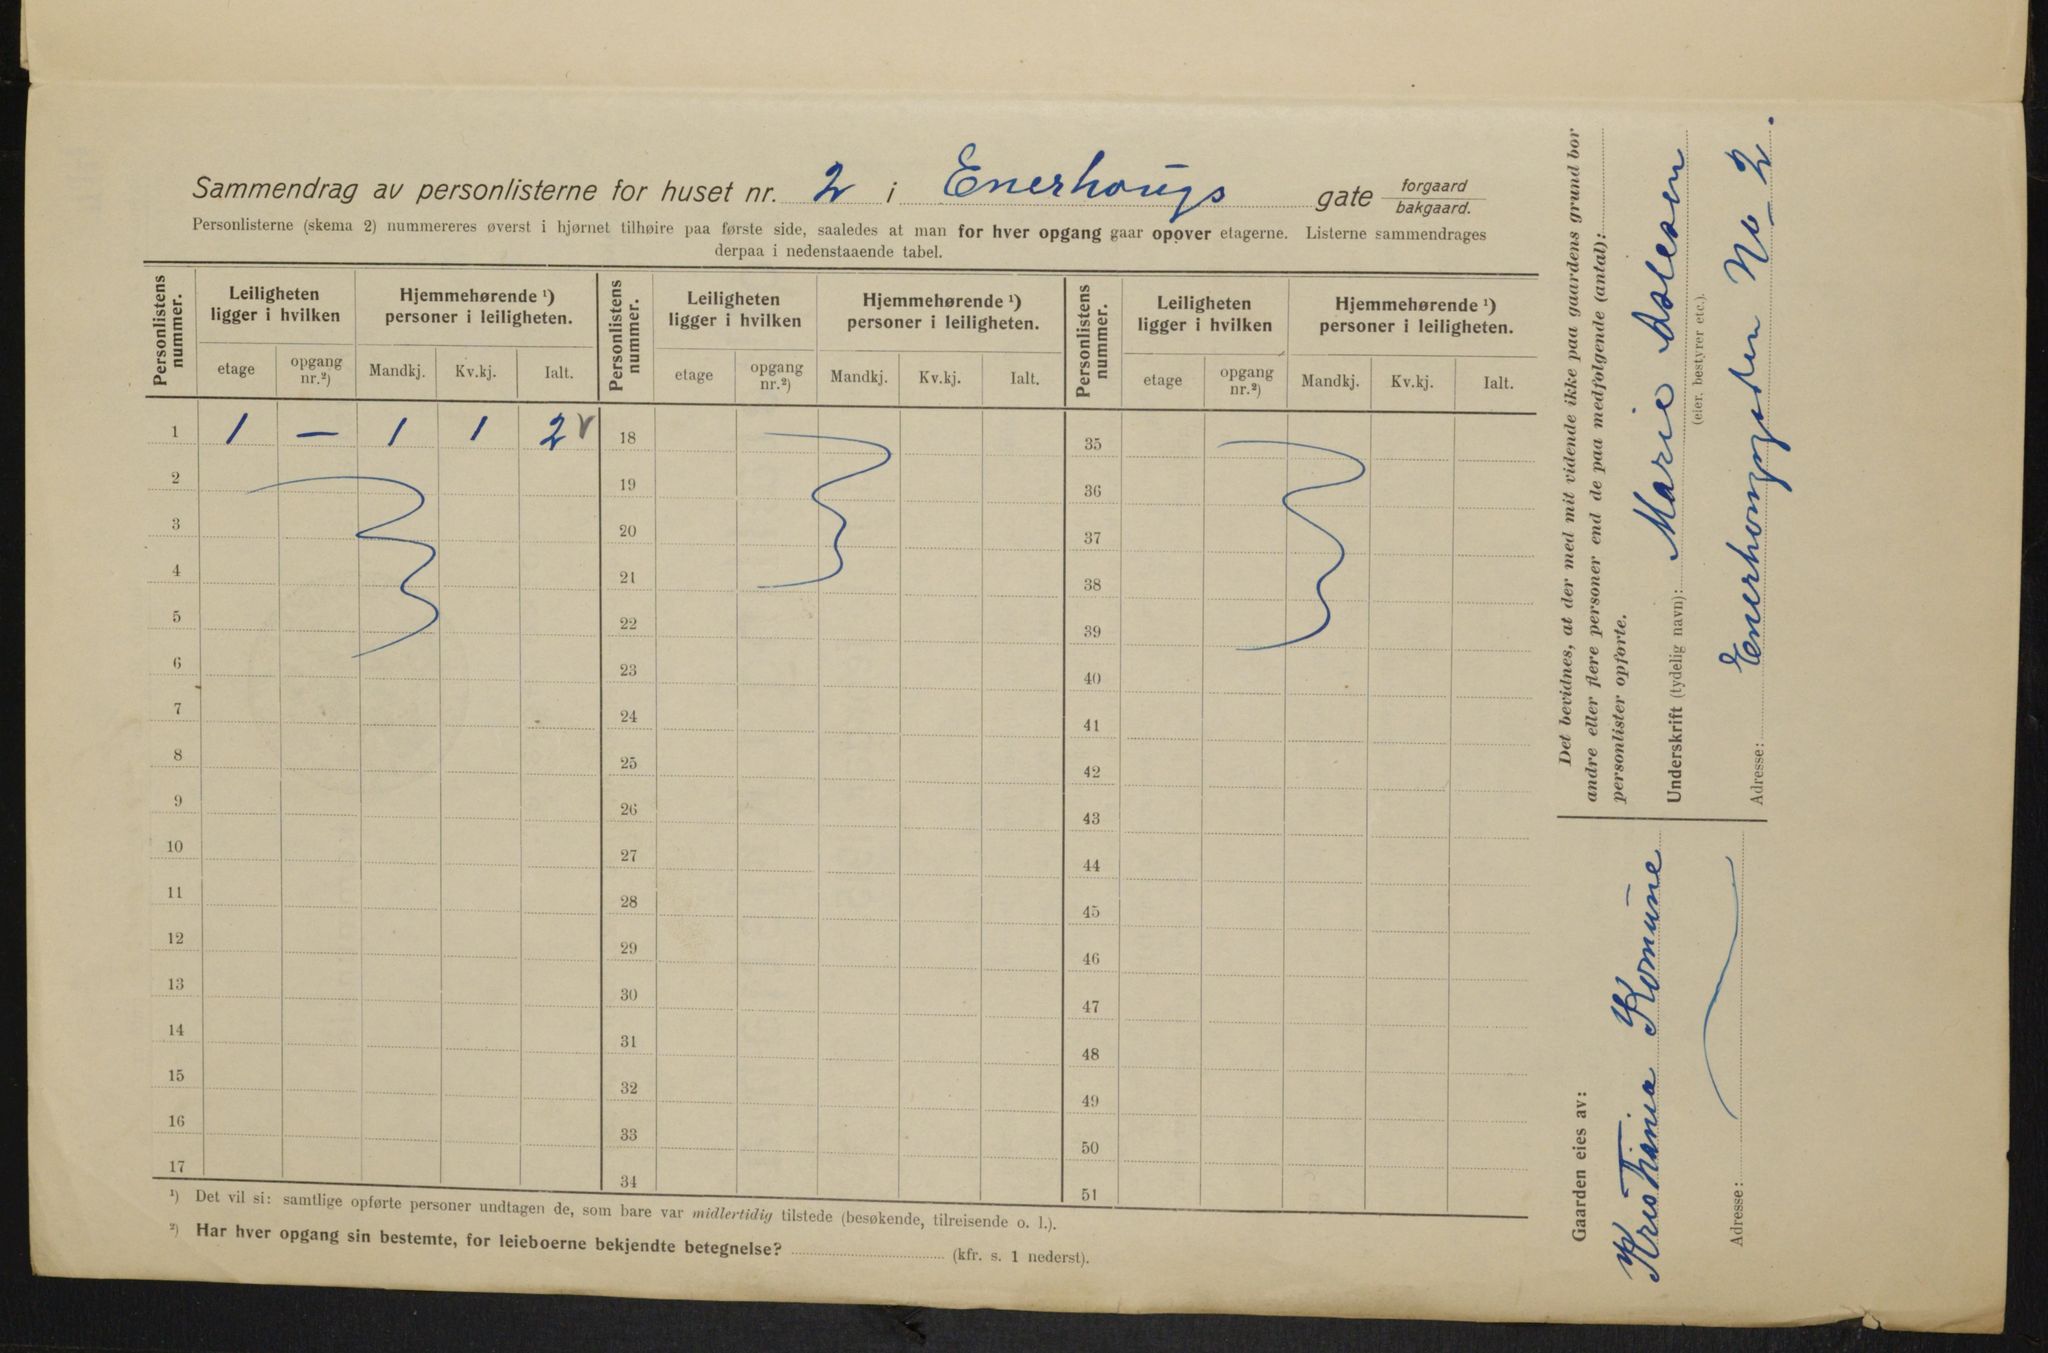 Sammendrag av personlisterne for huset nr. 2 i Enerhougs gate forgaard
bakgaard.
Personlisterne (skema 2) nummereres øverst i hjørnet tilhøire paa første side, saaledes at man for hver opgang gaar opover etagerne. Listerne sammendrages
derpaa i nedenstaaende tabel.
Personlistens nummer. Leiligheten ligger i hvilken Hjemmehørende ¹) personer i leiligheten. Personlistens nummer. Leiligheten ligger i hvilken Hjemmehørende ¹) personer i leiligheten. Personlistens nummer. Leiligheten ligger i hvilken Hjemmehørende ¹) personer i leiligheten.
etage opgang nr.²) Mandkj. Kv.kj. Ialt. etage opgang nr.²) Mandkj. Kv.kj. Ialt. etage opgang nr.²) Mandkj. Kv.kj. Ialt.
1 1 — 1 1 2 v 18 35
2 19 36
3 20 37
4 21 38
5 22 39
6 23 40
7 24 41
8 25 42
9 26 43
10 27 44
11 28 45
12 29 46
13 30 47
14 31 48
15 32 49
16 33 50
17 34 51
¹) Det vil si: samtlige opførte personer undtagen de, som bare var midlertidig tilstede (besøkende, tilreisende o. l.).
²) Har hver opgang sin bestemte, for leieboerne bekjendte betegnelse? (kfr. s. 1 nederst).
Det bevidnes, at der med mit vidende ikke paa gaardens grund bor
andre eller flere personer end de paa medfølgende (antal):
personlister opførte.
Underskrift (tydelig navn): Marie Aslesen
(eier, bestyrer etc.).
Adresse: Enerhougsgaden No 2.
Gaarden eies av:
Kristiania Komune
Adresse: